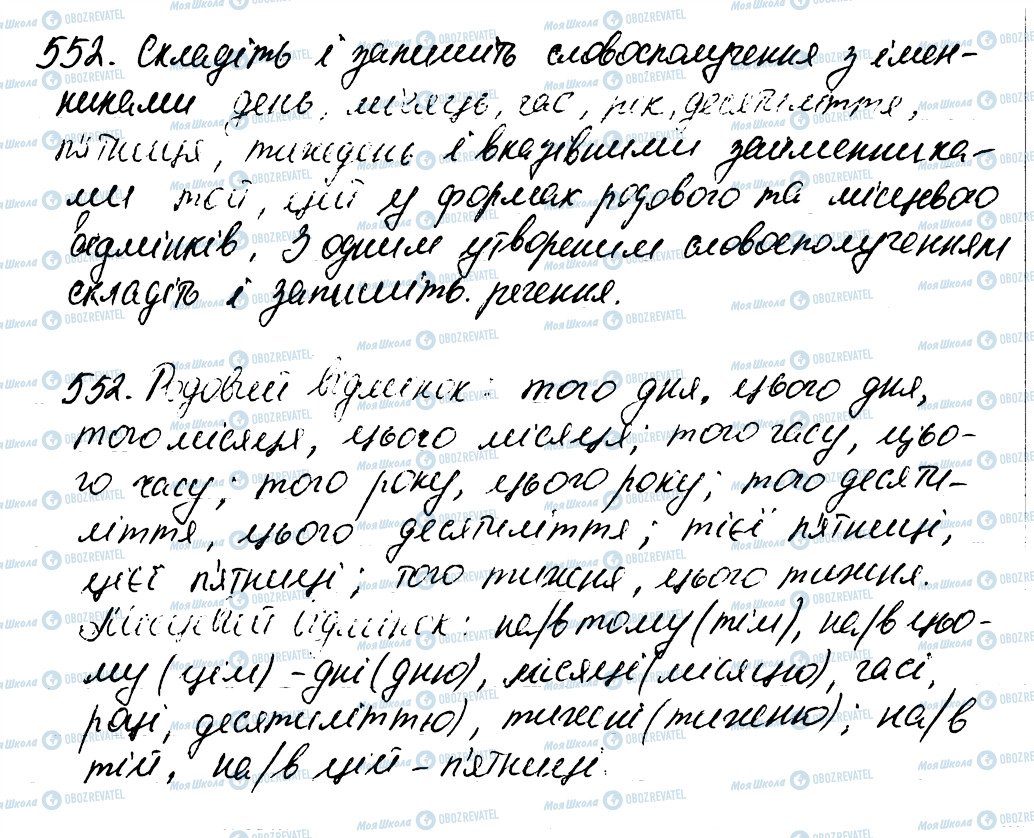 552. Складіть і запишіть словосполучення з імен-
никами день, місяць, час, рік, десятиліття,
п'ятниця, тиждень і вказівними займенника-
ми той, цей у формах родового та місцевого
відмінків. З одним утвореним словосполученням
складіть і запишіть. речення.
552. Родовий відмінок: того дня, цього дня,
того місяця, цього місяця; того часу, цьо-
го часу; того року, цього року; того десяти-
ліття, цього десятиліття; тієї п'ятниці,
цієї п'ятниці; того тижня, цього тижня.
Місцевий відмінок: на/в тому (тім), на/в цьо-
му (цім) - дні (дню), місяці (місяцю), часі,
році, десятиліттю), тижні (тижню); на/в
тій, на/в цій - п'ятниці.